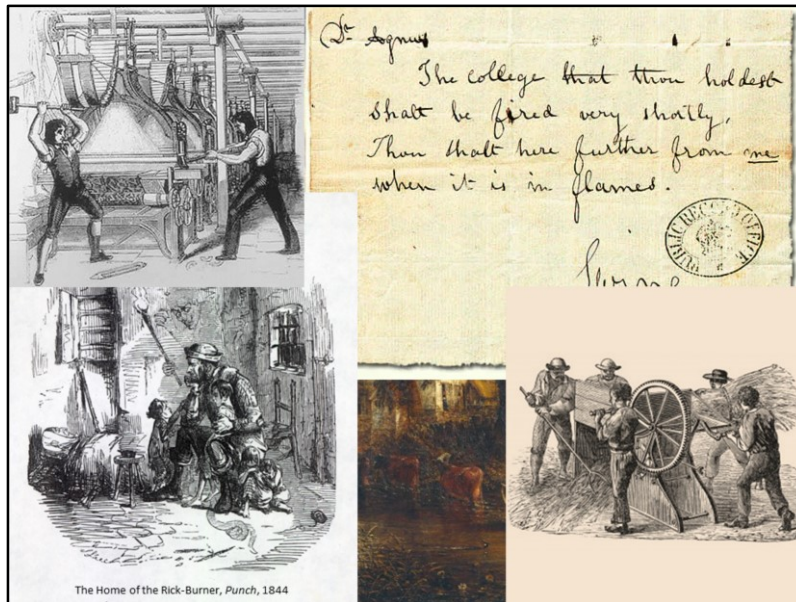 Dr
The college that thou holdest
shalt be fired very shortly.
Thou shalt here further from me
when it is in flames.
PUBLIC RECORD OFFICE
Swing
The Home of the Rick-Burner, Punch, 1844